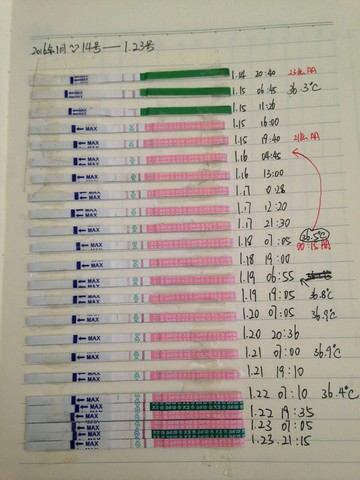 2016年1月14号—1.23号
1.14 20:40
1.15 06:45 36.3℃
1.15 11:20
MAX 1.15 16:00
MAX 1.15 19:40
MAX 1.16 04:45
MAX 1.16 13:00
MAX 1.17 0:28
MAX 1.17 12:20
MAX 1.17 21:30
MAX 1.18 07:05 36.5℃
MAX 1.18 19:00
MAX 1.19 06:55
MAX 1.19 19:05 36.8℃
MAX 1.20 07:05 36.9℃
MAX 1.20 20:36
MAX 1.21 07:00 36.9℃
MAX 1.21 19:10
MAX 1.22 07:10 36.4℃
MAX 1.22 19:35
MAX 1.23 07:05
MAX 1.23 21:15